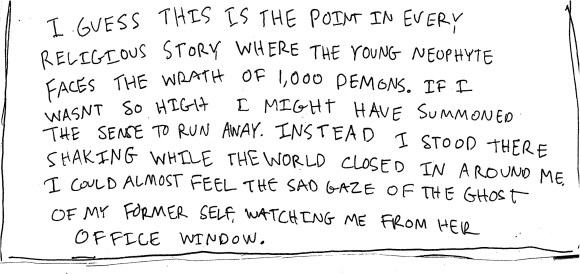 I GUESS THIS IS THE POINT IN EVERY
RELIGIOUS STORY WHERE THE YOUNG NEOPHYTE
FACES THE WRATH OF 1,000 DEMONS. IF I
WASNT SO HIGH I MIGHT HAVE SUMMONED
THE SENSE TO RUN AWAY. INSTEAD I STOOD THERE
SHAKING WHILE THE WORLD CLOSED IN AROUND ME.
I COULD ALMOST FEEL THE SAD GAZE OF THE GHOST
OF MY FORMER SELF, WATCHING ME FROM HER
OFFICE WINDOW.